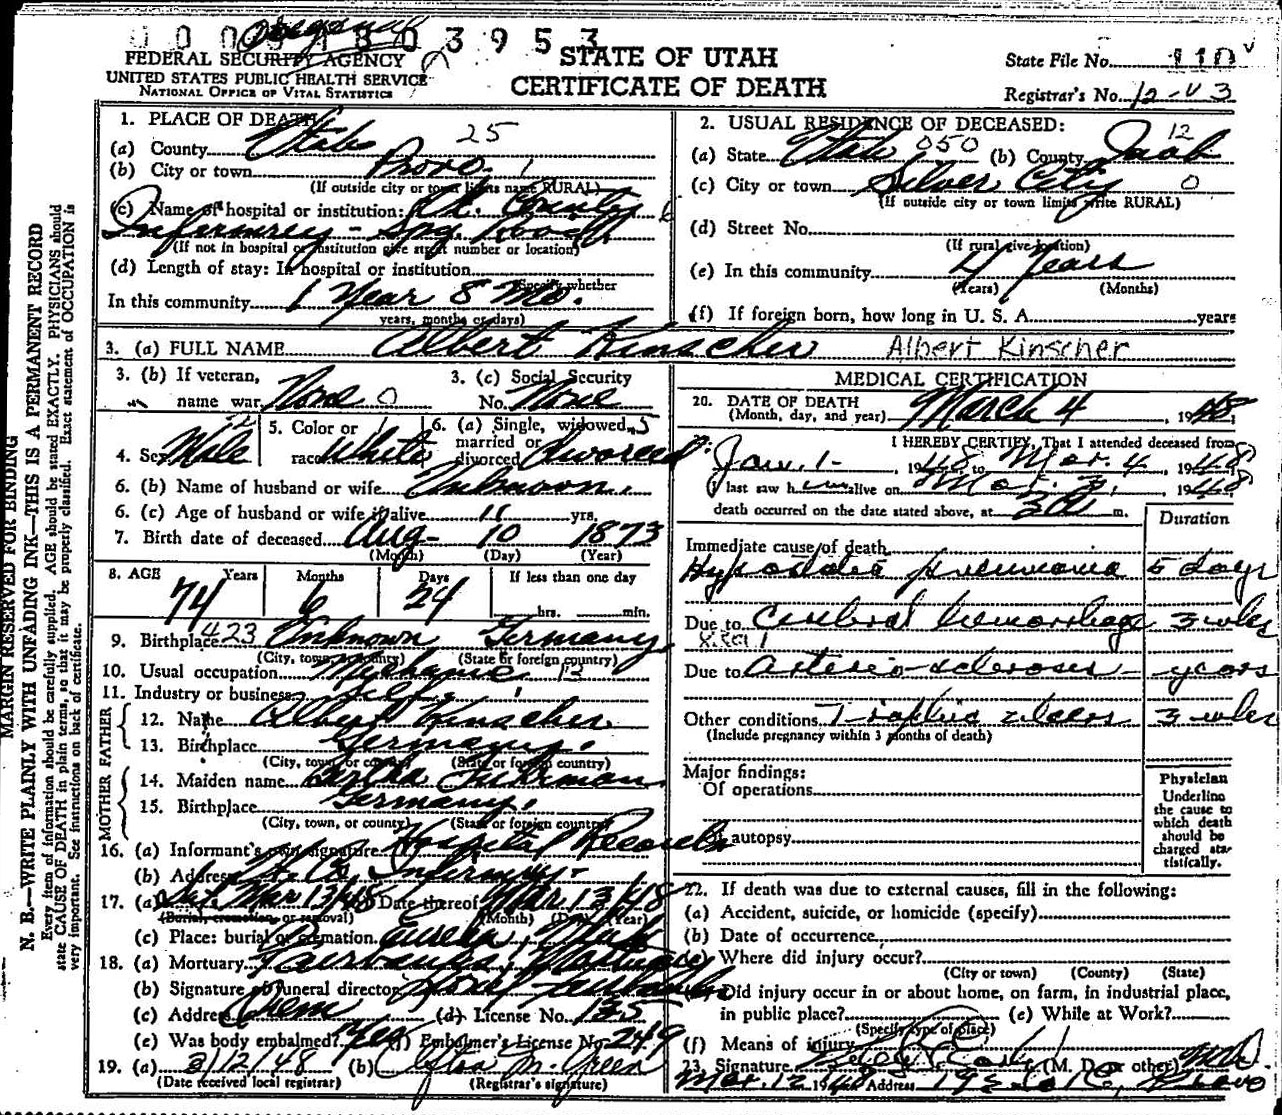 Original
0 0 0 5 1 8 0 3 9 5 3
FEDERAL SECURITY AGENCY
UNITED STATES PUBLIC HEALTH SERVICE
NATIONAL OFFICE OF VITAL STATISTICS
STATE OF UTAH
CERTIFICATE OF DEATH
State File No. 110
Registrar's No. 12-V3
MARGIN RESERVED FOR BINDING
N. B.—WRITE PLAINLY WITH UNFADING INK—THIS IS A PERMANENT RECORD
Every item of information should be carefully supplied. AGE should be stated EXACTLY. PHYSICIANS should
state CAUSE OF DEATH in plain terms, so that it may be properly classified. Exact statement of OCCUPATION is
very important. See instructions on back of certificate.
1. PLACE OF DEATH
(a) County Utah 25
(b) City or town Provo 1
(If outside city or town limits name RURAL)
(c) Name of hospital or institution: Ut. County
Infirmrey - Spg. Road
(If not in hospital or institution give street number or location)
(d) Length of stay: In hospital or institution
(Specify whether
In this community 1 Year 8 Mo.
years, months or days)
2. USUAL RESIDENCE OF DECEASED:
(a) State Utah 050 (b) County Juab 12
(c) City or town Silver City 0
(If outside city or town limits write RURAL)
(d) Street No.
(If rural give location)
(e) In this community 4 Years
(Years) (Months)
(f) If foreign born, how long in U. S. A. years
3. (a) FULL NAME Albert Kinscher Albert Kinscher
3. (b) If veteran, name war None 0
3. (c) Social Security No. None
4. Sex Male
5. Color or race White
6. (a) Single, widowed, married or divorced Divorced 5
6. (b) Name of husband or wife Unknown
6. (c) Age of husband or wife if alive " yrs.
7. Birth date of deceased Aug- 10 1873
(Month) (Day) (Year)
8. AGE Years Months Days If less than one day
74 6 24 hrs. min.
9. Birthplace 423 Unknown Germany
(City, town, or county) (State or foreign country)
10. Usual occupation Mechanic
11. Industry or business Self
FATHER
12. Name Albert Kinscher
13. Birthplace Germany
(City, town or county) (State or foreign country)
MOTHER
14. Maiden name Bertha Fuhrman
15. Birthplace Germany
(City, town, or county) (State or foreign country)
16. (a) Informant's own signature Hospital Records
(b) Address Ut. Co. Infirmry-
17. (a) Mar 13/48 Date thereof Mar 13 48
(Burial, cremation, or removal) (Month) (Day) (Year)
(c) Place: burial or cremation Eureka, Utah
18. (a) Mortuary Fairbanks Mortuary
(b) Signature of funeral director
(c) Address Orem (d) License No. 135
(e) Was body embalmed? Yes (f) Embalmer's License No. 249
19. (a) 3/12/48 (b) M. Green
(Date received local registrar) (Registrar's signature)
MEDICAL CERTIFICATION
20. DATE OF DEATH
(Month, day, and year) March 4, 1948
I HEREBY CERTIFY, That I attended deceased from
Jan. 1-, 1948 to Mar. 4, 1948
I last saw him alive on Mar. 3, 1948
death occurred on the date stated above, at 3 a m.
Duration
Immediate cause of death
Hypostatic pneumonia 5 days
Due to Cerebral hemorrhage 3 wks
Due to arterio-sclerosis - years
Other conditions Trophic ulcers 3 wks
(Include pregnancy within 3 months of death)
Major findings:
Of operations
Of autopsy
Physician
Underline
the cause to
which death
should be
charged sta-
tistically.
22. If death was due to external causes, fill in the following:
(a) Accident, suicide, or homicide (specify)
(b) Date of occurrence
(c) Where did injury occur?
(City or town) (County) (State)
(d) Did injury occur in or about home, on farm, in industrial place,
in public place? (e) While at Work?
(Specify type of place)
(f) Means of injury
23. Signature (M. D. or other) M.D.
Mar. 12 1948 Address Provo